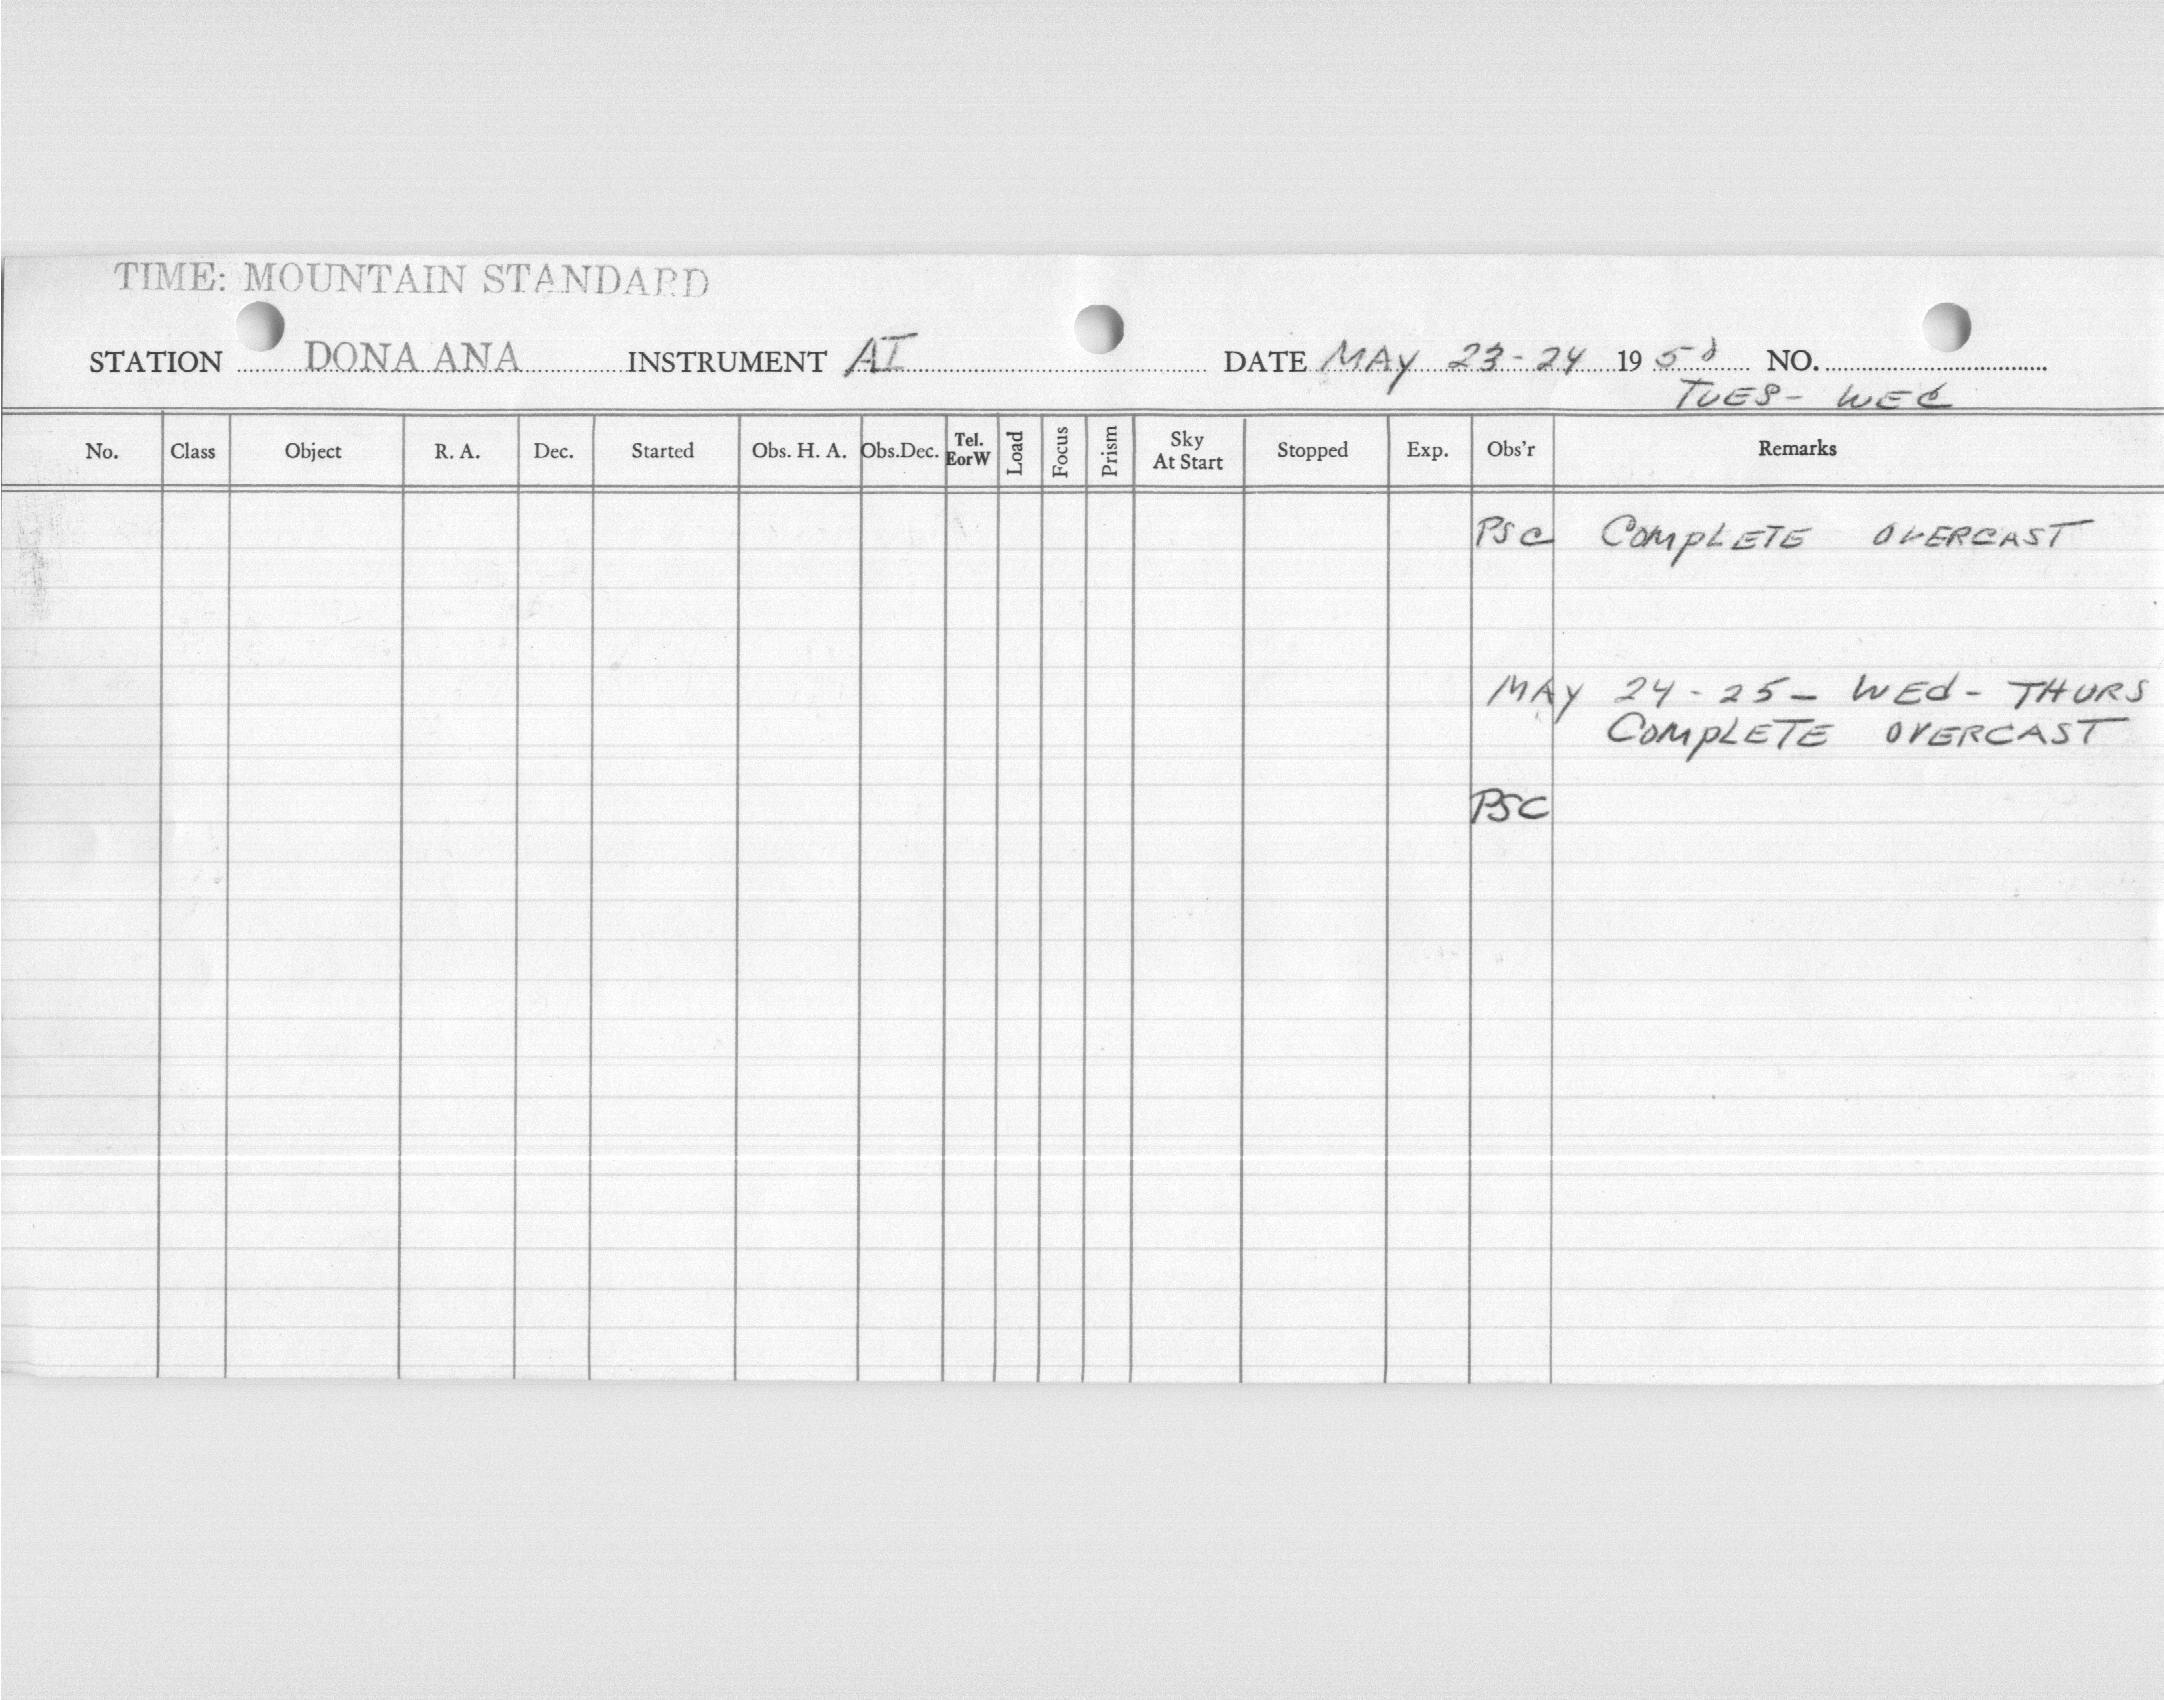 TIME: MOUNTAIN STANDARD
STATION DONA ANA INSTRUMENT AI DATE MAY 23-24 1950 NO.
TUES- WEd
No. Class Object R. A. Dec. Started Obs. H. A. Obs.Dec. Tel. EorW Load Focus Prism Sky At Start Stopped Exp. Obs'r Remarks
PSC COMPLETE OVERCAST
MAY 24-25- WEd- THURS
COMPLETE OVERCAST
PSC